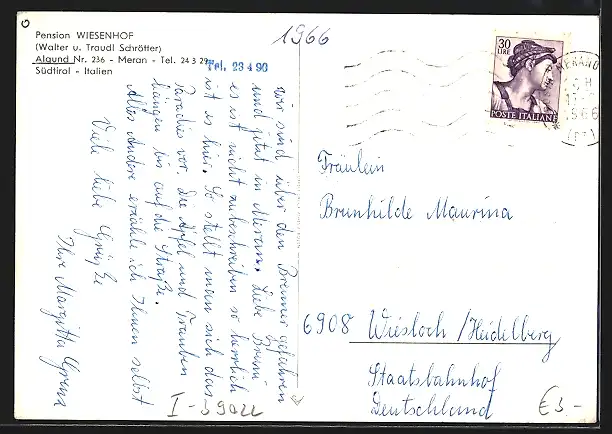 Pension WIESENHOF
(Walter u. Traudl Schrötter)
Algund Nr. 236 - Meran - Tel. 24 3 29
Südtirol - Italien
Tel. 23 4 90
1966
30
LIRE
POSTE ITALIANE
MERANO
1966
(BZ)
Wir sind über den Brenner gefahren
und jetzt in Meran. Liebe Bruni
es ist nicht zu beschreiben so herrlich
ist es hier. So stellt man sich das
Paradies vor. Die Äpfel und Trauben
hängen bis auf die Straße.
Alles Andere erzähle ich Ihnen selbst
Viele liebe Grüße
Ihre Margitta
Fräulein
Brunhilde Maurina
6908 Wiesloch/Heidelberg
Staatsbahnhof
Deutschland
I-59022
€3.-